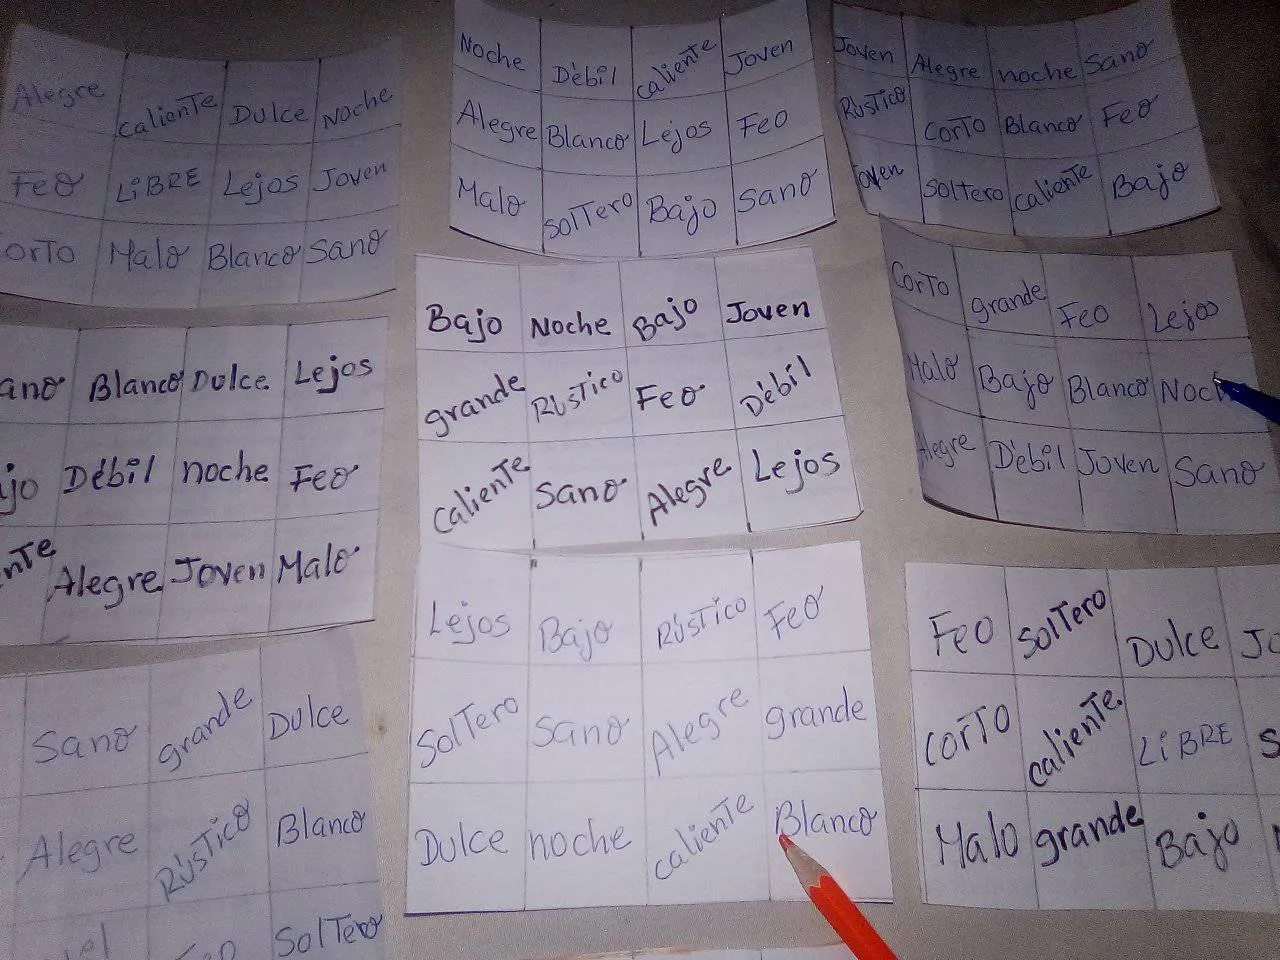 Alegre Caliente Dulce Noche
Feo LiBRE Lejos Joven
Malo Blanco Sano
Noche Débil caliente Joven
Alegre Blanco Lejos Feo
Malo SolTero Bajo Sano
Joven Alegre noche Sano
RÚSTico CorTo Blanco Feo
Joven SolTero calienTe Bajo
Blanco Dulce Lejos
Débil noche Feo
Alegre Joven Malo
Bajo Noche Bajo Joven
grande RÚSTico Feo Débil
calienTe Sano Alegre Lejos
CorTo grande Feo Lejos
Malo Bajo Blanco
Alegre Débil Joven Sano
Sano grande Dulce
Alegre RÚSTico Blanco
SolTero
Lejos Bajo RÚSTico Feo
SolTero Sano Alegre grande
Dulce noche calienTe Blanco
Feo SolTero Dulce
CorTo calienTe LiBRE
Malo grande Bajo